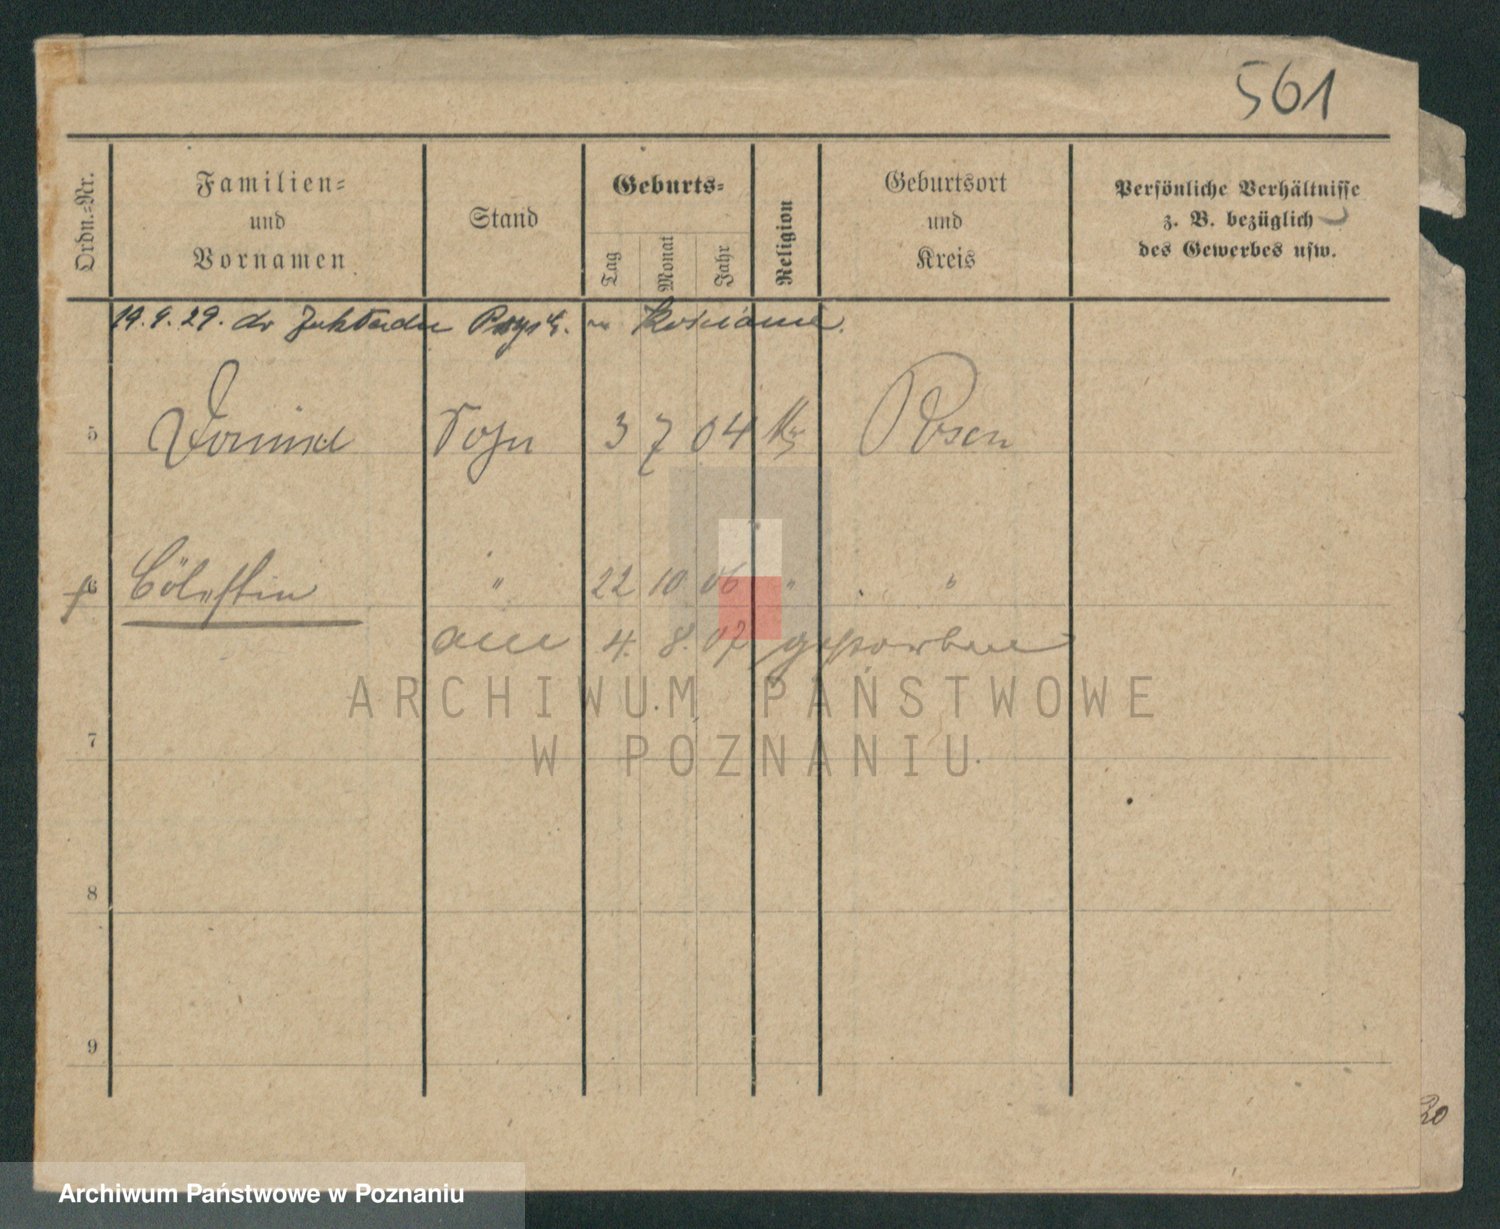 561
Ordn.-Nr.
Familien-
und
Vornamen
Stand
Geburts-
Tag
Monat
Jahr
Religion
Geburtsort
und
Kreis
Persönliche Verhältnisse
z. B. bezüglich
des Gewerbes usw.
29. do w Poznaniu.
5 Sohn 3 7 04 Posen
6 Cölestin " 22 10 06 " "
am 4. 8. 07 gestorben
ARCHIWUM PAŃSTWOWE
W POZNANIU
7
8
9
20
Archiwum Państwowe w Poznaniu